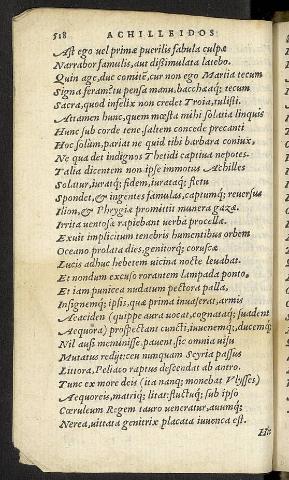 518 ACHILLEIDOS
Ast ego uel primæ puerilis fabula culpæ
Narrabor famulis, aut dißimulata latebo.
Quin age, duc comitē, cur non ego Martia tecum
Signa feram? tu pensa manu, bacchæaq; tecum
Sacra, quod infelix non credet Troia, tulisti.
Attamen hunc, quem mœsta mihi solatia linquis
Hunc sub corde tene, saltem concede precanti
Hoc solùm, pariat ne quid tibi barbara coniux,
Ne qua det indignos Thetidi captiua nepotes.
Talia dicentem non ipse immotus Achilles
Solatur, iuratq; fidem, iurataq; fletu
Spondet, & ingentes famulas, captumq; reuersus
Ilion, & Phrygiæ promittit munera gazæ.
Irrita uentosæ rapiebant uerba procellæ.
Exuit implicitum tenebris humentibus orbem
Oceano prolata dies, genitorq; coruscæ
Lucis adhuc hebetem uicina nocte leuabat
Et nondum excusso rorantem lampada ponto,
Et iam punicea nudatum pectora palla,
Insignemq; ipsis, quæ prima inuaserat, armis
Aeaciden (quippe aura uocat, cognataq; suadent
Aequora) prospectant cuncti, iuuenemq; ducemq;
Nil ausi meminisse. pauent, sic omnia uisu
Mutatus redijt: ceu nunquam Scyria passus
Littora, Peliaco raptus descendat ab antro.
Tunc ex more deis (ita nanq; monebat Vlysses)
Aequoreis, matriq; litat: fluctuq; sub ipso
Cœruleum Regem tauro ueneratur, auumq;
Nerea, uittata genitrix placata iuuenca est.